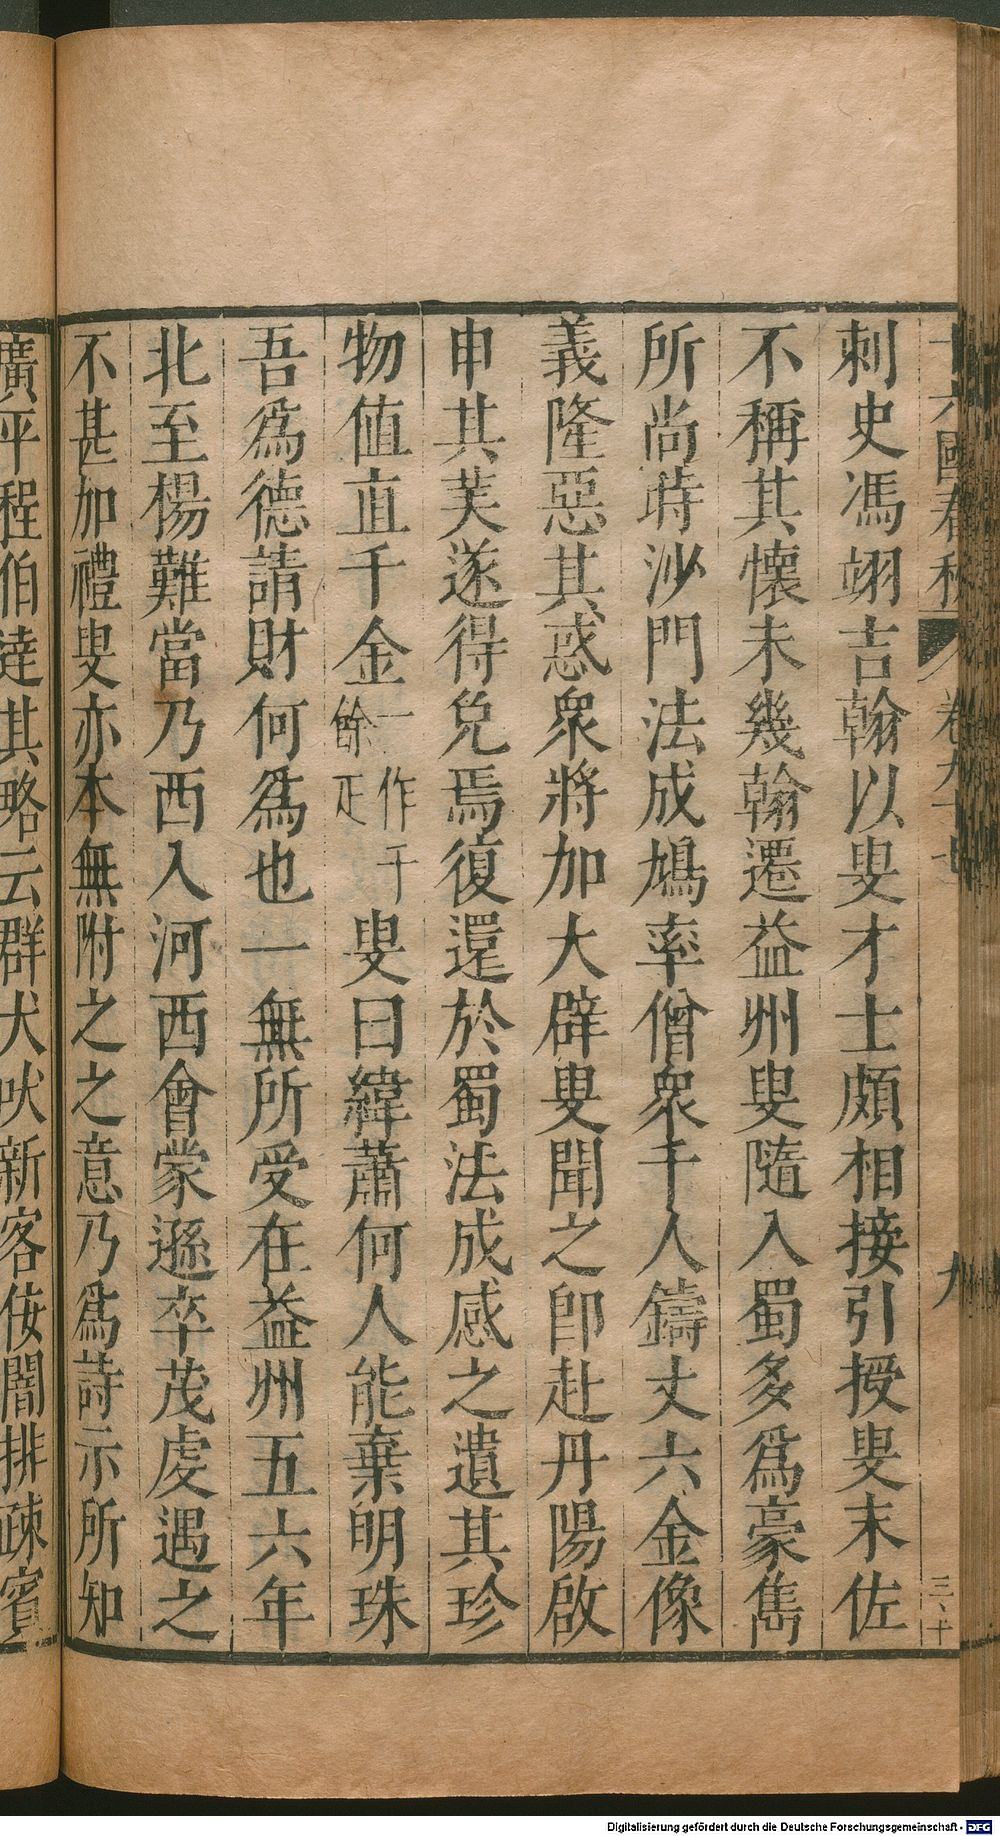 十六國春秋 卷九十七 九 三、十
刺史馮翊吉翰以叟才士頗相接引授叟末佐
不稱其懷未幾翰遷益州叟隨入蜀多爲豪雋
所尚時沙門法成鳩率僧衆千人鑄丈六金像
義隆惡其惑衆將加大辟叟聞之卽赴丹陽啟
申其芙遂得免焉復還於蜀法成感之遺其珍
物値直千金一作千餘疋叟曰緯蕭何人能棄明珠
吾爲德請財何爲也一無所受在益州五六年
北至楊難當乃西入河西會蒙遜卒茂虔遇之
不甚加禮叟亦本無附之之意乃爲詩示所知
廣平程伯達其略云群犬吠新客佞闇排疎賓
Digitalisierung gefördert durch die Deutsche Forschungsgemeinschaft - DFG